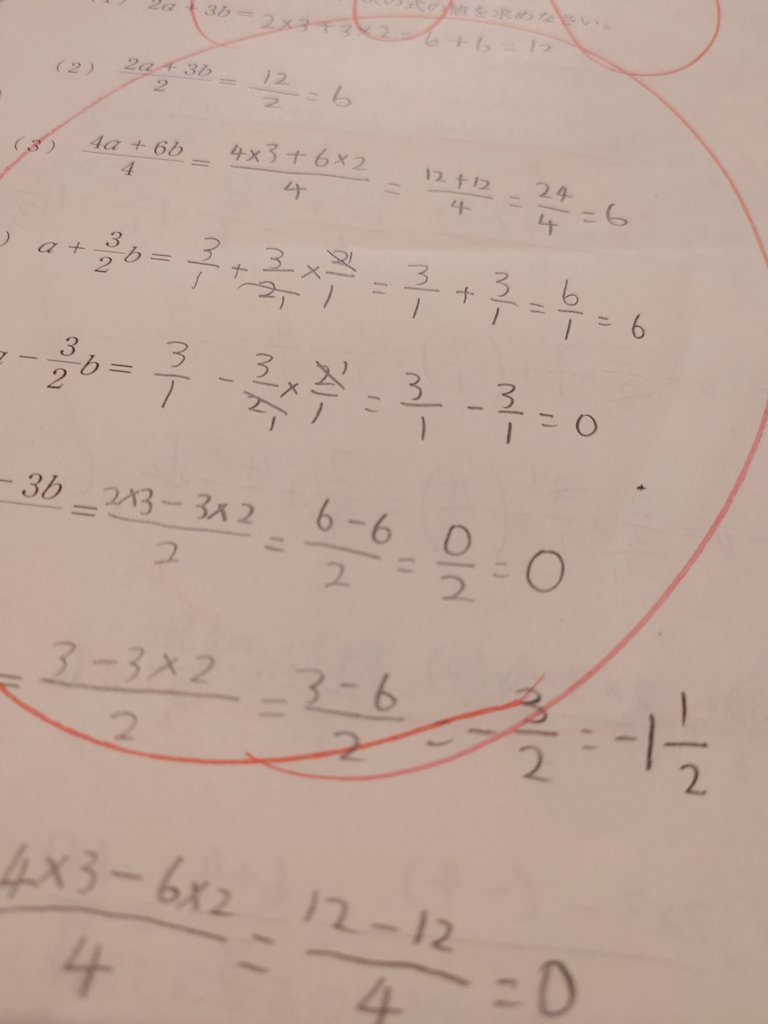 (1) 2a + 3b = 2×3+3×2=6+6=12 の式の値を求めなさい。
(2) \frac{2a + 3b}{2} = \frac{12}{2} = 6
(3) \frac{4a + 6b}{4} = \frac{4×3+6×2}{4} = \frac{12+12}{4} = \frac{24}{4} = 6
) a + \frac{3}{2}b = \frac{3}{1} + \frac{3}{2 1} × \frac{2 1}{1} = \frac{3}{1} + \frac{3}{1} = \frac{6}{1} = 6
- \frac{3}{2}b = \frac{3}{1} - \frac{3}{2 1} × \frac{2 1}{1} = \frac{3}{1} - \frac{3}{1} = 0
- 3b = \frac{2×3-3×2}{2} = \frac{6-6}{2} = \frac{0}{2} = 0
= \frac{3-3×2}{2} = \frac{3-6}{2} = -\frac{3}{2} = -1\frac{1}{2}
\frac{4×3-6×2}{4} = \frac{12-12}{4} = 0